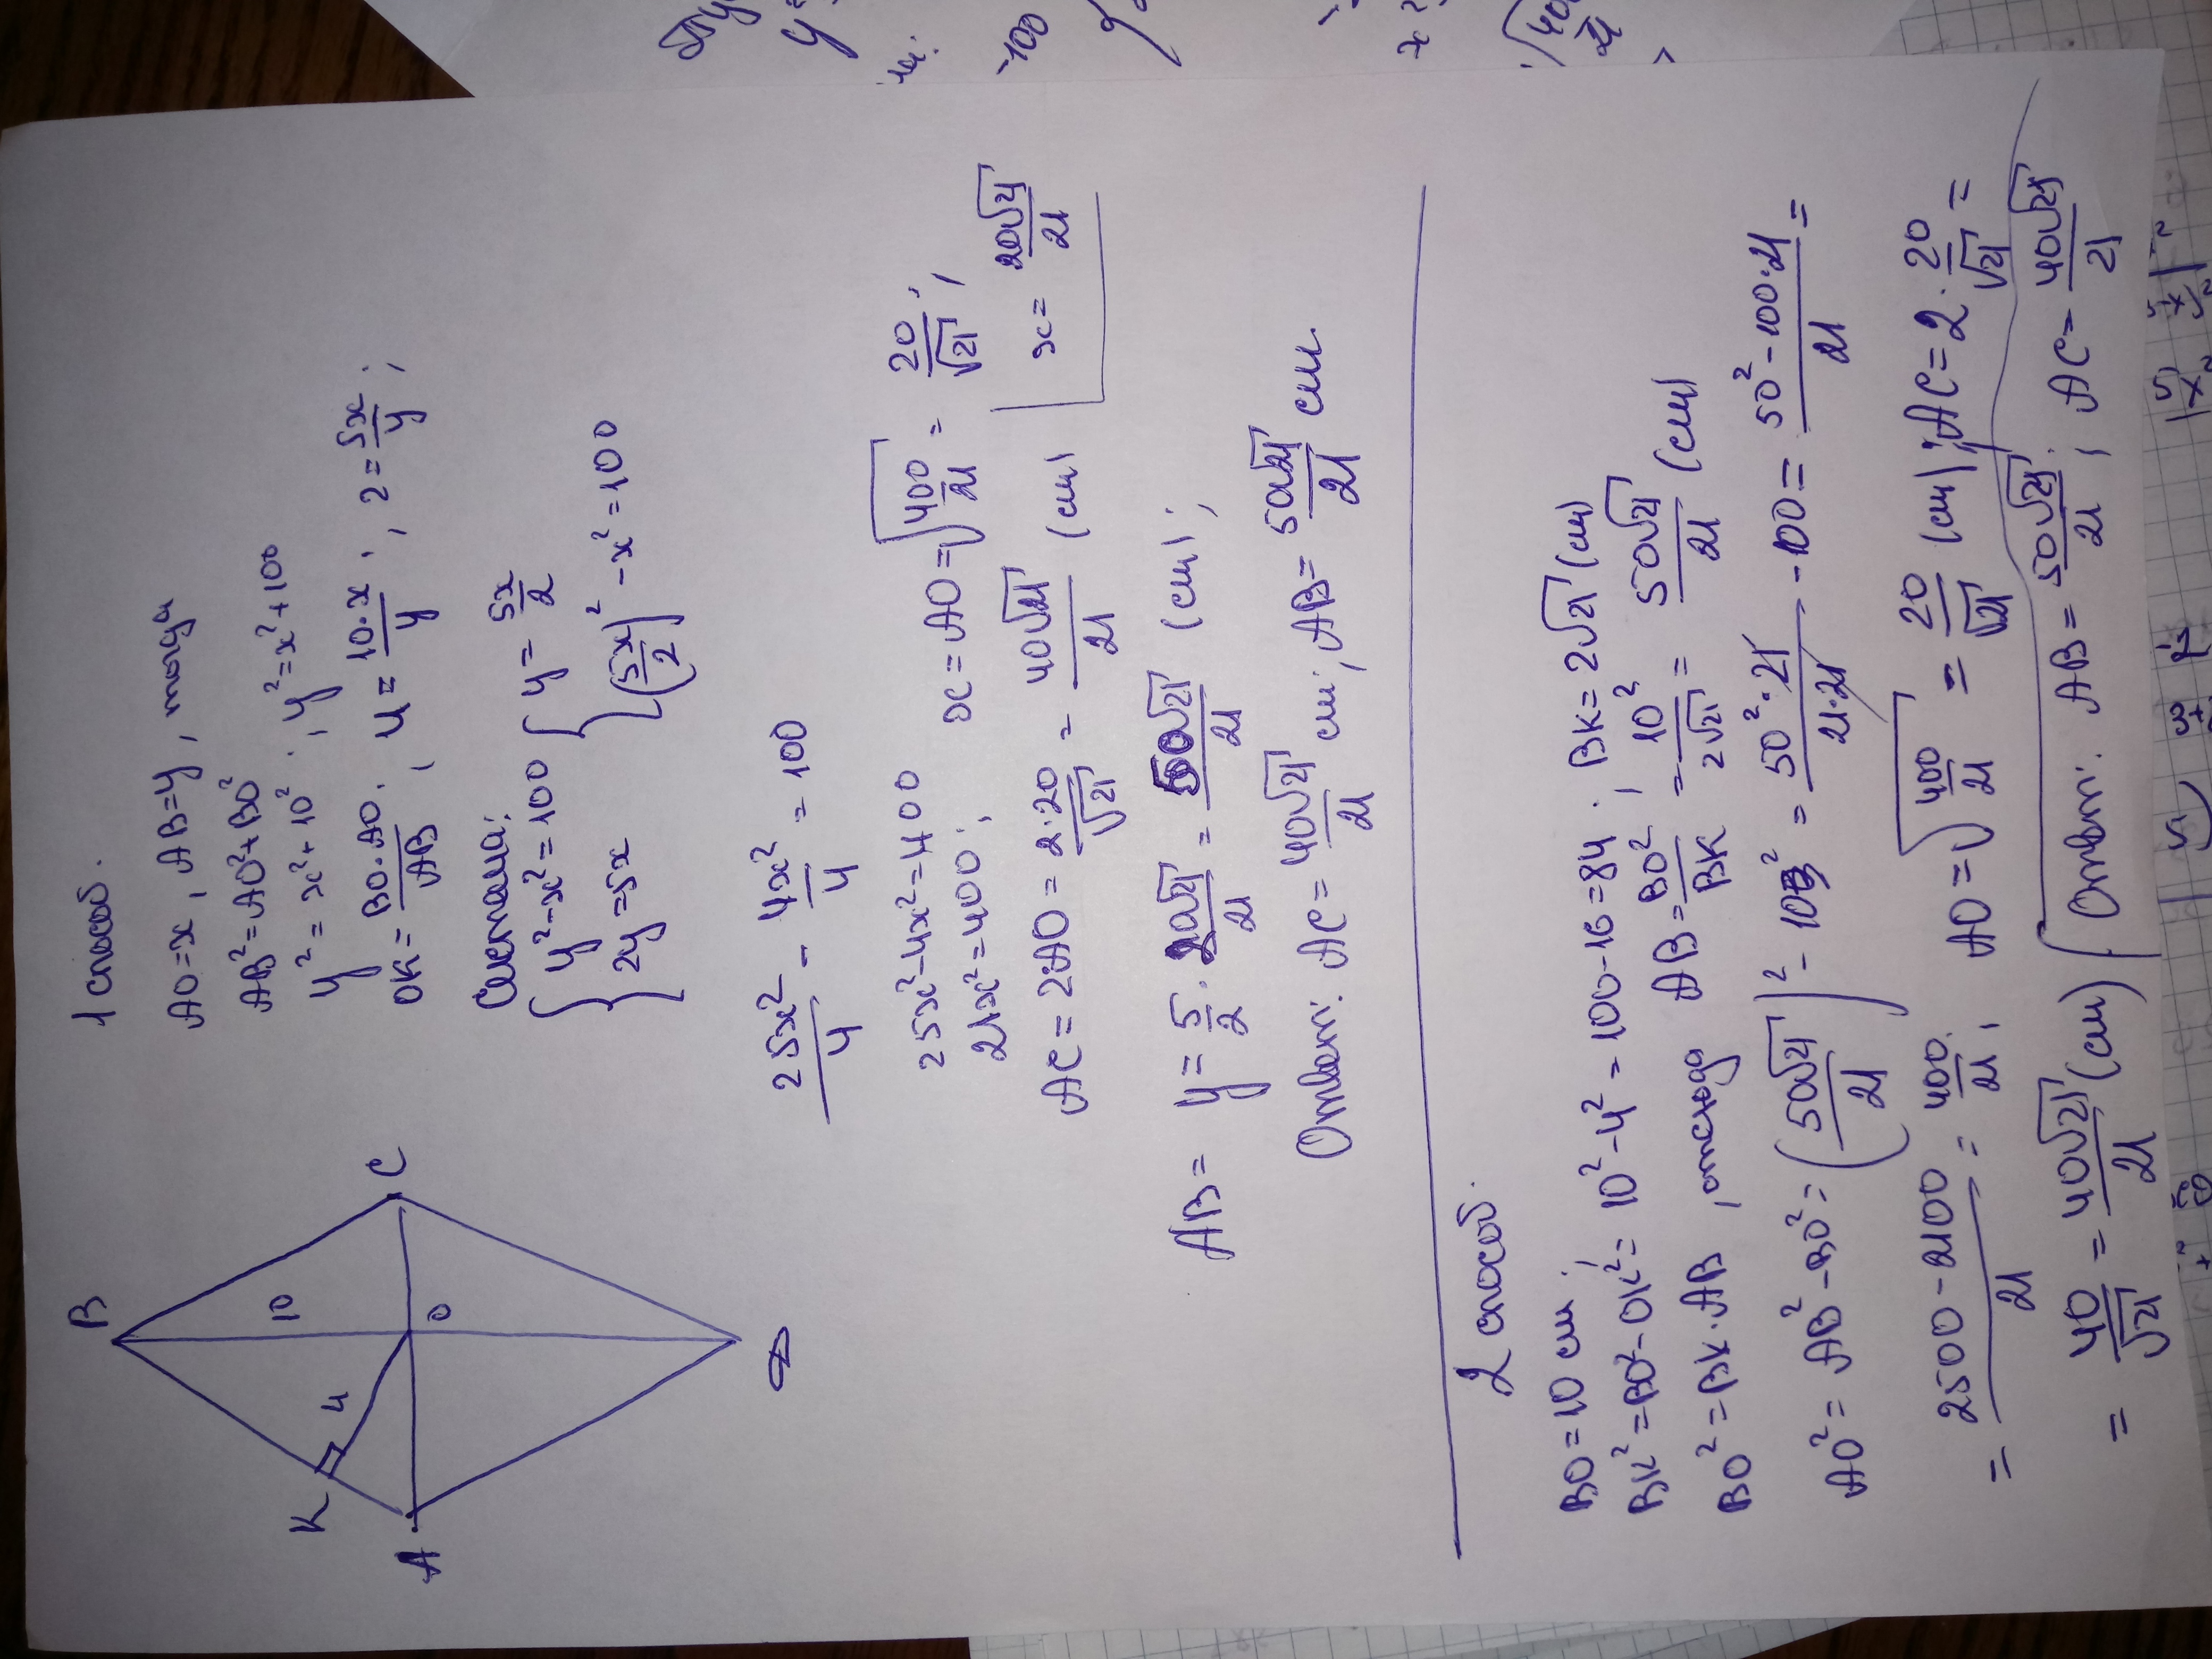 B
10
K
4
A
O
C
D
1 способ.
AO=x, AB=y, тогда
AB²=AO²+BO²
y²=x²+10²; y²=x²+100
OK=BO·AO/AB; 4=10·x/y; 2=5x/y;
Система:
{y²-x²=100 {y=5x/2
{2y=5x {(5x/2)²-x²=100
25x²/4 - 4x²/4 = 100
25x²-4x²=400
21x²=400; x=AO=√(400/21)=20/√21;
x=20√21/21
AC=2AO=2·20/√21=40√21/21 (см)
AB= y=5/2·20√21/21=50√21/21 (см);
Ответ: AC=40√21/21 см; AB=50√21/21 см
2 способ.
BO=10 см;
BK²=BO²-OK²=10²-4²=100-16=84; BK=2√21 (см)
BO²=BK·AB, отсюда AB=BO²/BK=10²/2√21=50√21/21 (см)
AO²=AB²-BO²=(50√21/21)²-10²=50²·21/21·21-100=50²-100·21/21=
=2500-2100/21=400/21; AO=√(400/21)=20/√21 (см); AC=2·20/√21=
=40/√21=40√21/21 (см)
Ответ: AB=50√21/21; AC=40√21/21